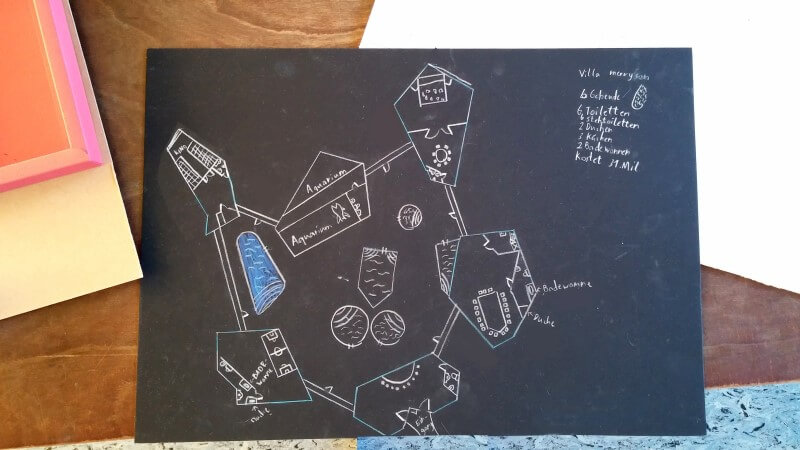 Villa
6 Gebeude
6 Toiletten
4 stehtoiletten
2 Duchen
3 Küchen
2 Badewannen
Kostet 31.Mil
Aquarium
Aquarium
Badewanne
Duche
BADE
wanne
Duche
Ein
gang